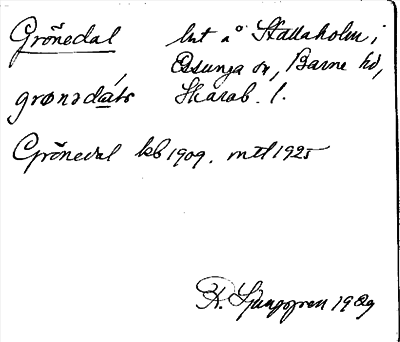 Grönedal lht å Stallaholm i
Essunga sn, Barne hd,
grønədáɫs Skarab. l.
Grönedal kb 1909. mtl 1925
R. Ljunggren 1929